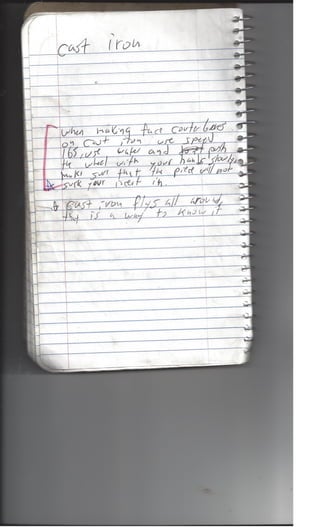 cast iron
when making face conterbores
on cast iron use speed
165, use water and push
the wheel with your hands slowly
make sure that the piece will not
suck your insert in.
cast iron flys all around
this is a way to know it